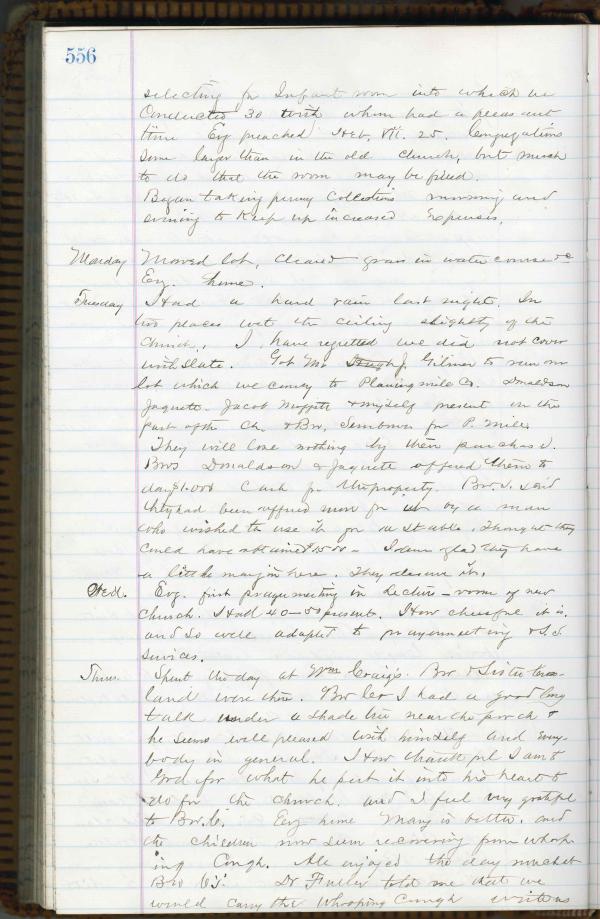 556
selecting for Infant room into which we
Conducted 30 with whom had a pleasant
time Evg preached Heb. VII. 25. Congregations
some larger than in the old church, but much
to do that the room may be filled.
Began taking penny Collections morning and
evening to Keep up increased Expenses.
Monday Mowed lot, cleared grass in water course &c
Evg. home.
Tuesday Had a hard rain last night. In
two places wet the ceiling slightly of the
Church. I have regretted we did not cover
with slate. Got Mr. Gilmer to run on
lot which we convey to Planing mill Co. Donaldson
Jaquette. Jacob & myself present on the
part of the Ch. & Bro. for P. Mill.
They will lose nothing by their purchase.
Bros Donaldson & Jaquette offered them to
day $1.000 Cash for the property. Bro. S. said
they had been offered more for it by a man
who wished to use it for a Stable. Thought they
could have obtained $1500 - I am glad they have
a little margin here. They deserve it.
Wed. Evg. first prayermeeting in Lecture-room of new
Church. Had 40-50 present. How cheerful it is.
and so well adapted to prayermeeting & S.S.
Services.
Thur. Spent the day at Wm Craig's. Bro. & Sister Cros-
land were there. Bro C & I had a good long
talk under a shade tree near the porch &
he seems well pleased with himself and every-
body in general. How thankful I am to
God for what he put it into his heart to
do for the church. and I feel very grateful
to Bro. C. Evg home Mary is better. and
the children now seem recovering from whoop
ing Cough. We enjoyed the day much at
Bro C's. Dr Fuller told me that we
would carry the Whooping Cough with us